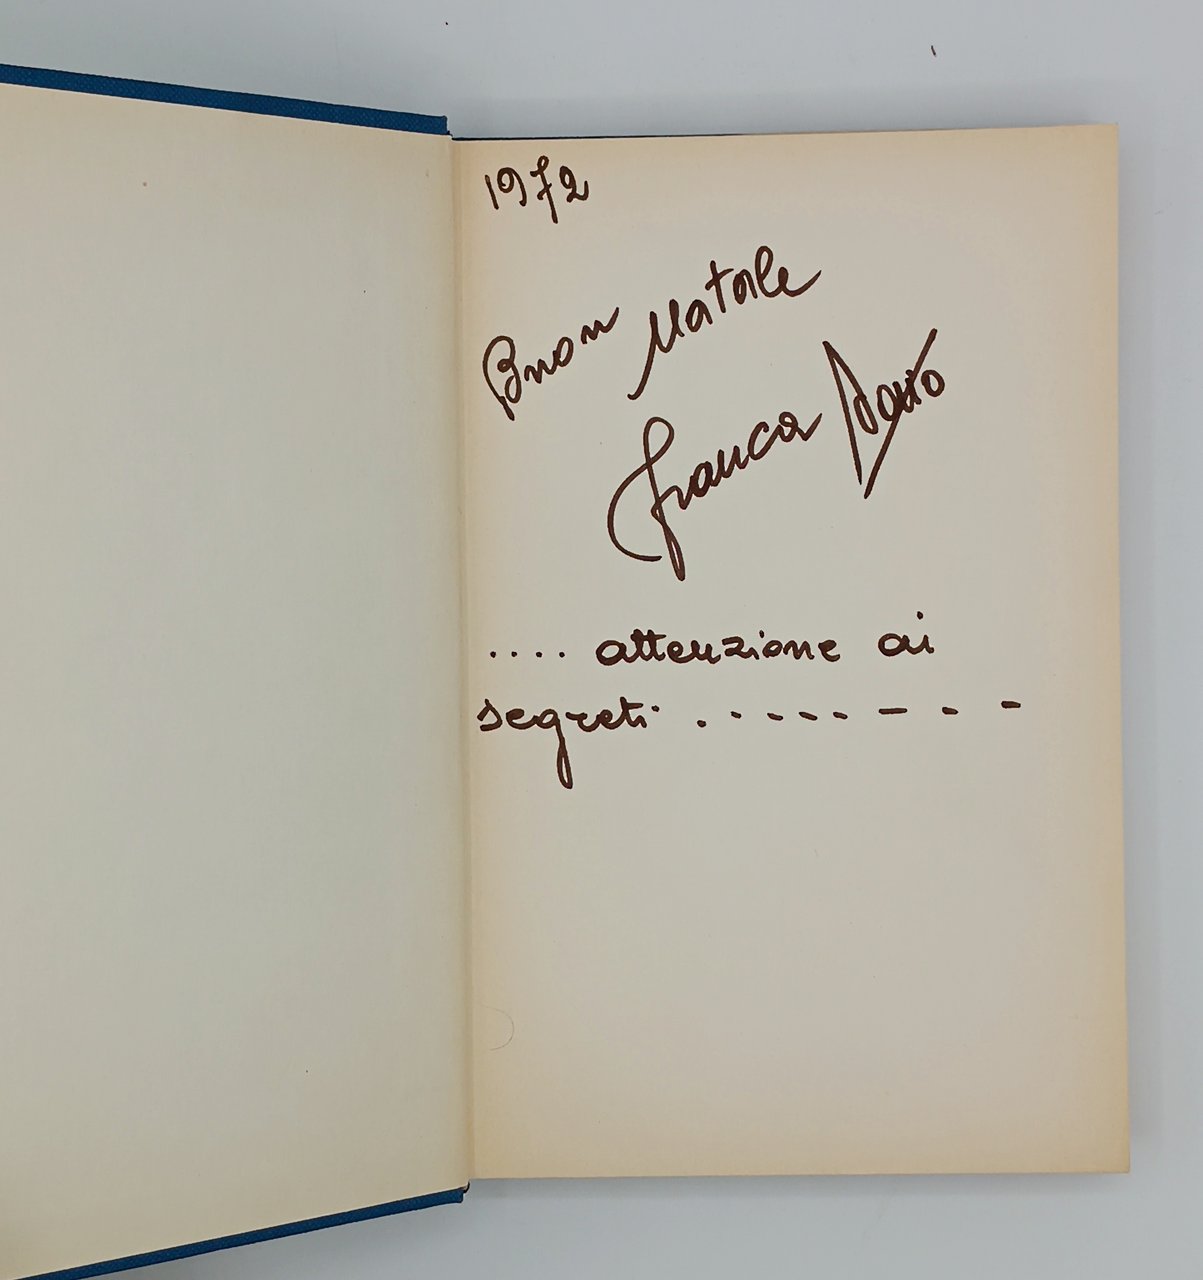 1972
Buon Natale
Franca
.... attenzione ai
segreti ........